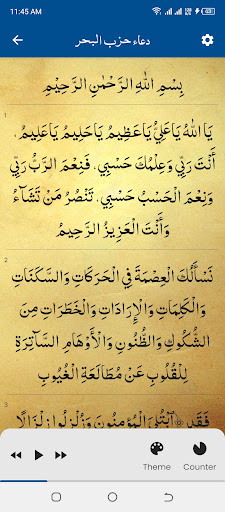 11:45 AM
دعاء حزب البحر
بِسْمِ اللهِ الرَّحْمٰنِ الرَّحِيْمِ
1
يَا اَللهُ يَا عَلِيُّ يَا عَظِيْمُ يَا حَلِيْمُ يَا عَلِيْمُ،
أَنْتَ رَبِّيْ وَعِلْمُكَ حَسْبِيْ، فَنِعْمَ الرَّبُّ رَبِّيْ
وَنِعْمَ الْحَسْبُ حَسْبِيْ، تَنْصُرُ مَنْ تَشَآءُ
وَأَنْتَ الْعَزِيْزُ الرَّحِيمُ
2
نَسْأَلُكَ الْعِصْمَةَ فِي الْحَرَكَاتِ وَالسَّكَنَاتِ
وَالْكَلِمَاتِ وَالْإِرَادَاتِ وَالْخَطَرَاتِ مِنَ
الشُّكُوْكِ وَالظُّنُوْنِ وَالْأَوْهَامِ السَّآتِرَةِ
لِلْقُلُوْبِ عَنْ مُطَالَعَةِ الْغُيُوْبِ
3
فَقَدِ ابْتُلِيَ الْمُؤْمِنُوْنَ وَزُلْزِلُوْا زِلْزَالًا
Theme
Counter